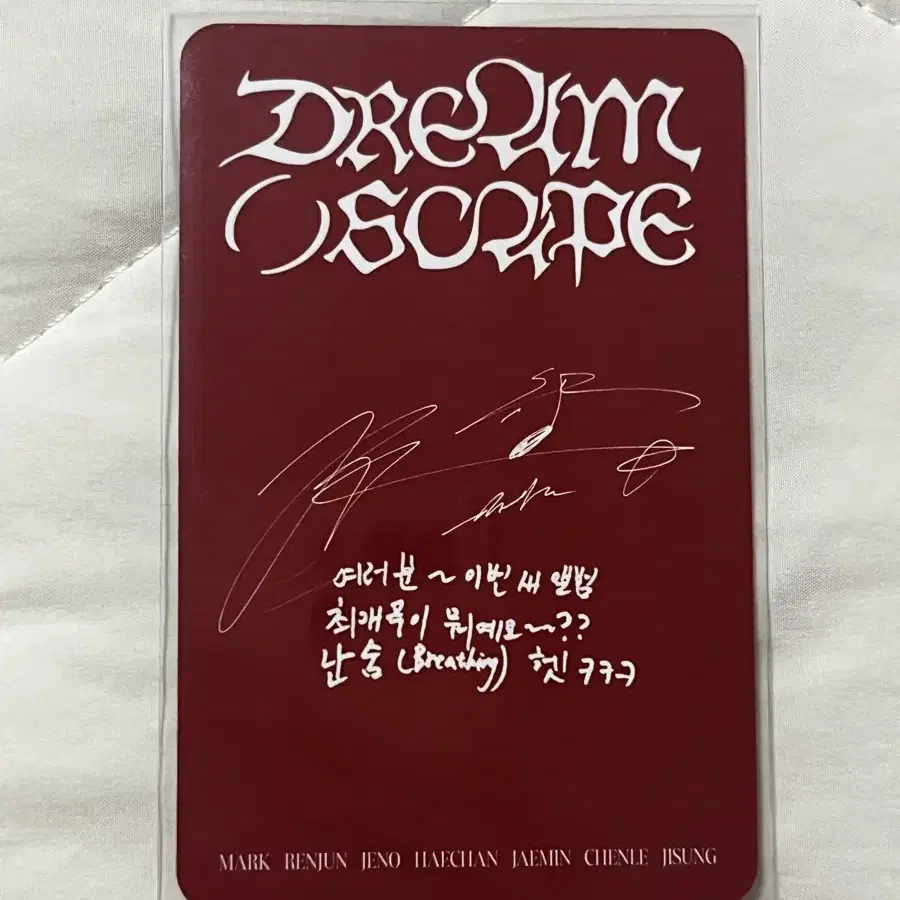 DREAM
()SCAPE
여러분~이번 새 앨범
최애곡이 뭐예요~~??
난 숨(Breathing) 헷 ㅋㅋㅋ
MARK RENJUN JENO HAECHAN JAEMIN CHENLE JISUNG